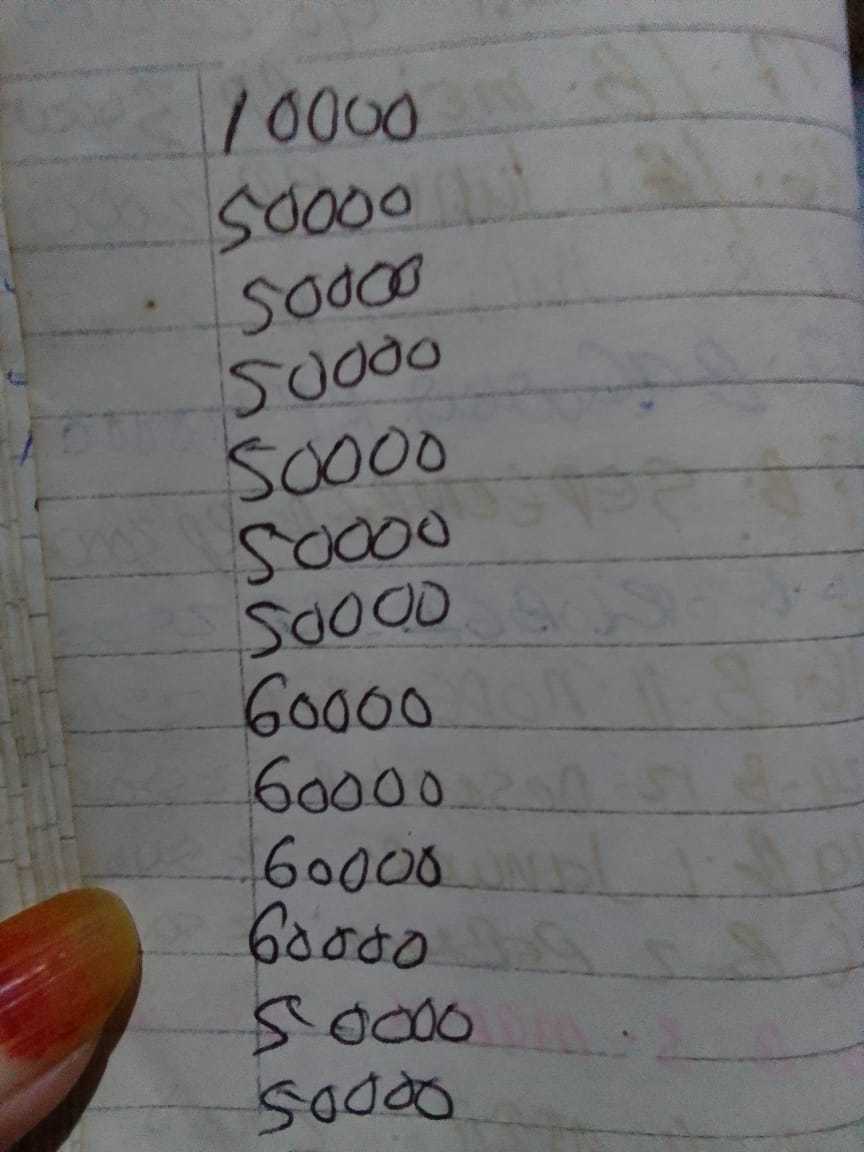 10000
50000
50000
50000
50000
50000
50000
60000
60000
60000
60000
50000
50000